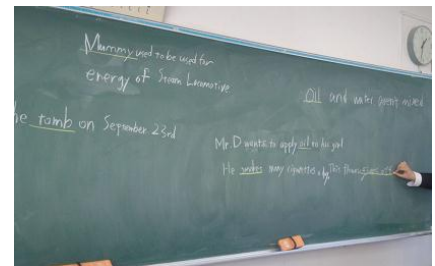 Mummy used to be used for
energy of Steam Locomotive
Oil and water aren't mixed
he tomb on September 23rd
Mr. D wants to apply oil to his
He smokes many cigarettes. This